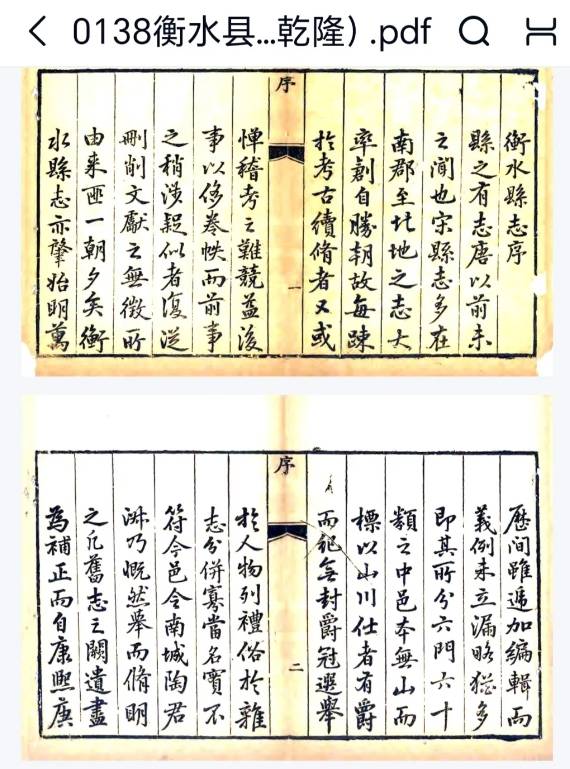 0138衡水县...乾隆）.pdf
序
衡水縣志序
縣之有志唐以前未
之聞也宋縣志多在
南郡至北地之志大
率創自勝朝故每踈
於考古續脩者又或
一
憚稽考之難競益後
事以侈卷帙而前事
之稍涉疑似者復從
刪削文獻之無徵所
由来匪一朝夕矣衡
水縣志亦肇始明萬
序
歷間雖遞加編輯而
義例未立漏略猶多
即其所分六門六十
類之中邑本無山而
標以山川仕者有爵
而絕無封爵冠選舉
二
於人物列禮俗於雜
志分併寡當名實不
符今邑令南城陶君
淑乃慨然舉而脩明
之凡舊志之闕遺盡
為補正而自康熙庚